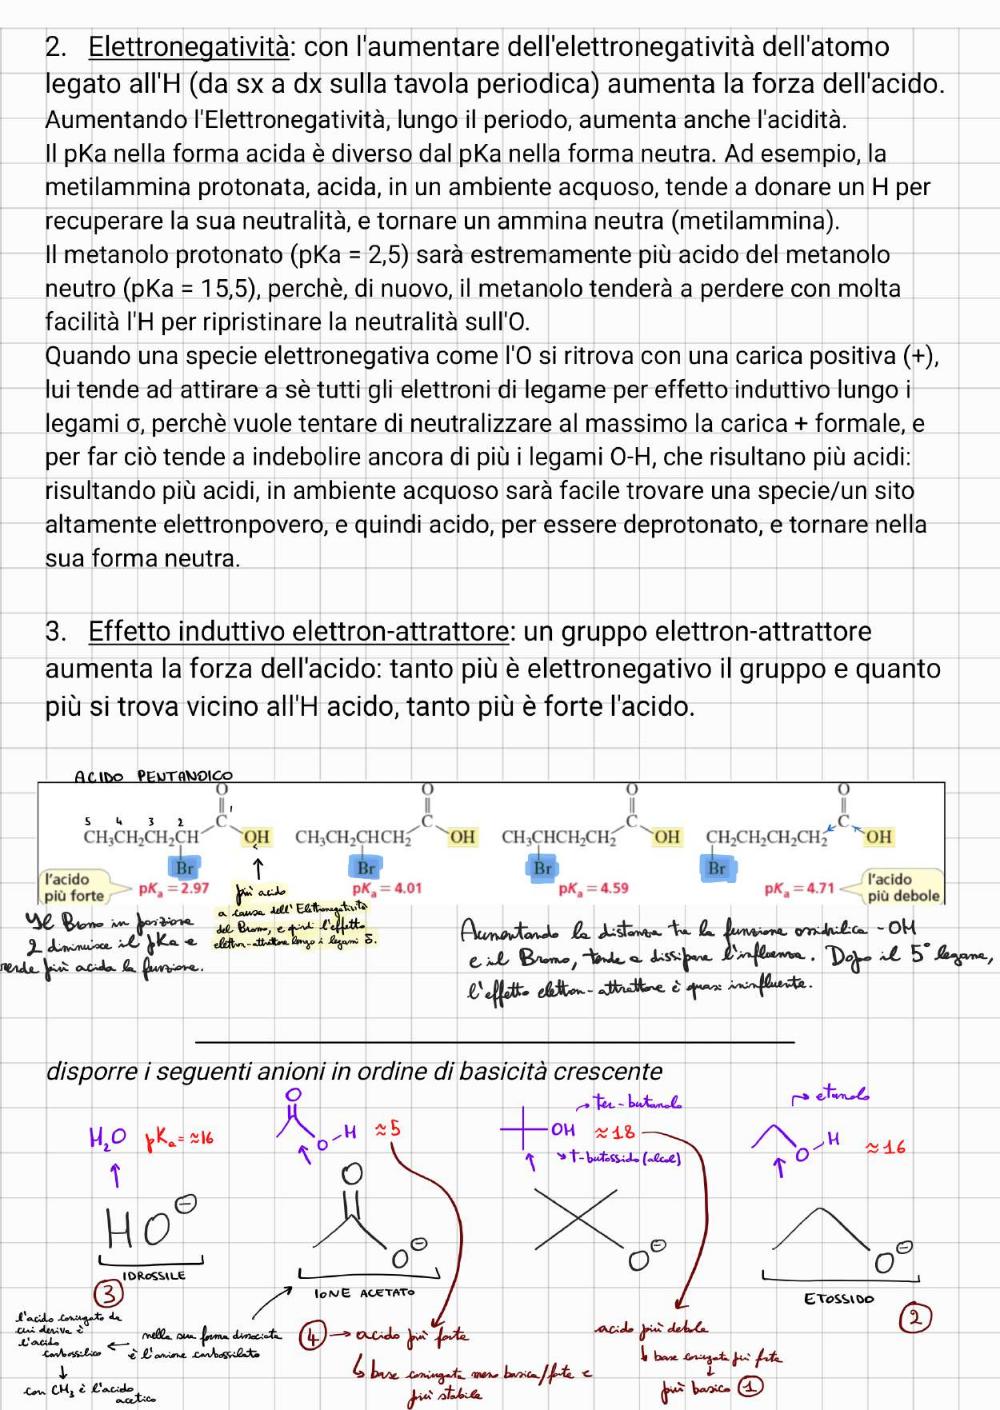 2. Elettronegatività: con l'aumentare dell'elettronegatività dell'atomo
legato all'H (da sx a dx sulla tavola periodica) aumenta la forza dell'acido.
Aumentando l'Elettronegatività, lungo il periodo, aumenta anche l'acidità.
Il pKa nella forma acida è diverso dal pKa nella forma neutra. Ad esempio, la
metilammina protonata, acida, in un ambiente acquoso, tende a donare un H per
recuperare la sua neutralità, e tornare un ammina neutra (metilammina).
Il metanolo protonato (pKa = 2,5) sarà estremamente più acido del metanolo
neutro (pKa = 15,5), perchè, di nuovo, il metanolo tenderà a perdere con molta
facilità l'H per ripristinare la neutralità sull'O.
Quando una specie elettronegativa come l'O si ritrova con una carica positiva (+),
lui tende ad attirare a sè tutti gli elettroni di legame per effetto induttivo lungo i
legami σ, perchè vuole tentare di neutralizzare al massimo la carica + formale, e
per far ciò tende a indebolire ancora di più i legami O-H, che risultano più acidi:
risultando più acidi, in ambiente acquoso sarà facile trovare una specie/un sito
altamente elettronpovero, e quindi acido, per essere deprotonato, e tornare nella
sua forma neutra.
3. Effetto induttivo elettron-attrattore: un gruppo elettron-attrattore
aumenta la forza dell'acido: tanto più è elettronegativo il gruppo e quanto
più si trova vicino all'H acido, tanto più è forte l'acido.
ACIDO PENTANOICO
O O O O
5 4 3 2 1
CH₃CH₂CH₂CH C OH CH₃CH₂CHCH₂ C OH CH₃CHCH₂CH₂ C OH CH₂CH₂CH₂CH₂ C OH
Br Br Br Br
l'acido
più forte
pKa = 2.97 pKa = 4.01 pKa = 4.59 pKa = 4.71
l'acido
più debole
più acido
a causa dell'Elettronegatività
del Bromo, e quindi l'effetto
elettron-attrattore lungo i legami δ.
Il Bromo in posizione
2 diminuisce il pKa e
rende più acida la funzione.
Aumentando la distanza tra la funzione ossidrilica -OH
e il Bromo, tende a dissipare l'influenza. Dopo il 5° legame,
l'effetto elettron-attrattore è quasi ininfluente.
disporre i seguenti anioni in ordine di basicità crescente
H₂O pKa = ≈16
O
O-H ≈5
→ ter-butanolo
OH ≈18
→ t-butossido (alcol)
→ etanolo
O-H ≈16
HO⊖
IDROSSILE
3
O
O⊖
IONE ACETATO
O⊖
O⊖
ETOSSIDO
2
l'acido coniugato da
cui deriva è
l'acido
carbossilico
con CH₃ è l'acido
acetico
nella sua forma dissociata
è l'anione carbossilato
4 → acido più forte
base coniugata meno basica/forte e
più stabile
acido più debole
base coniugata più forte
più basico 1